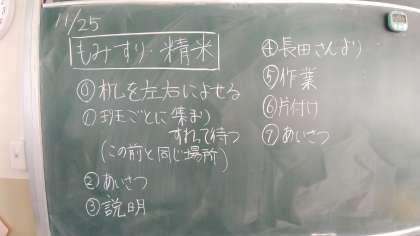 11/25
もみすり・精米
⓪机を左右によせる
①班ごとに集まり
すわって待つ
(この前と同じ場所)
②あいさつ
③説明
④長田さんより
⑤作業
⑥片付け
⑦あいさつ